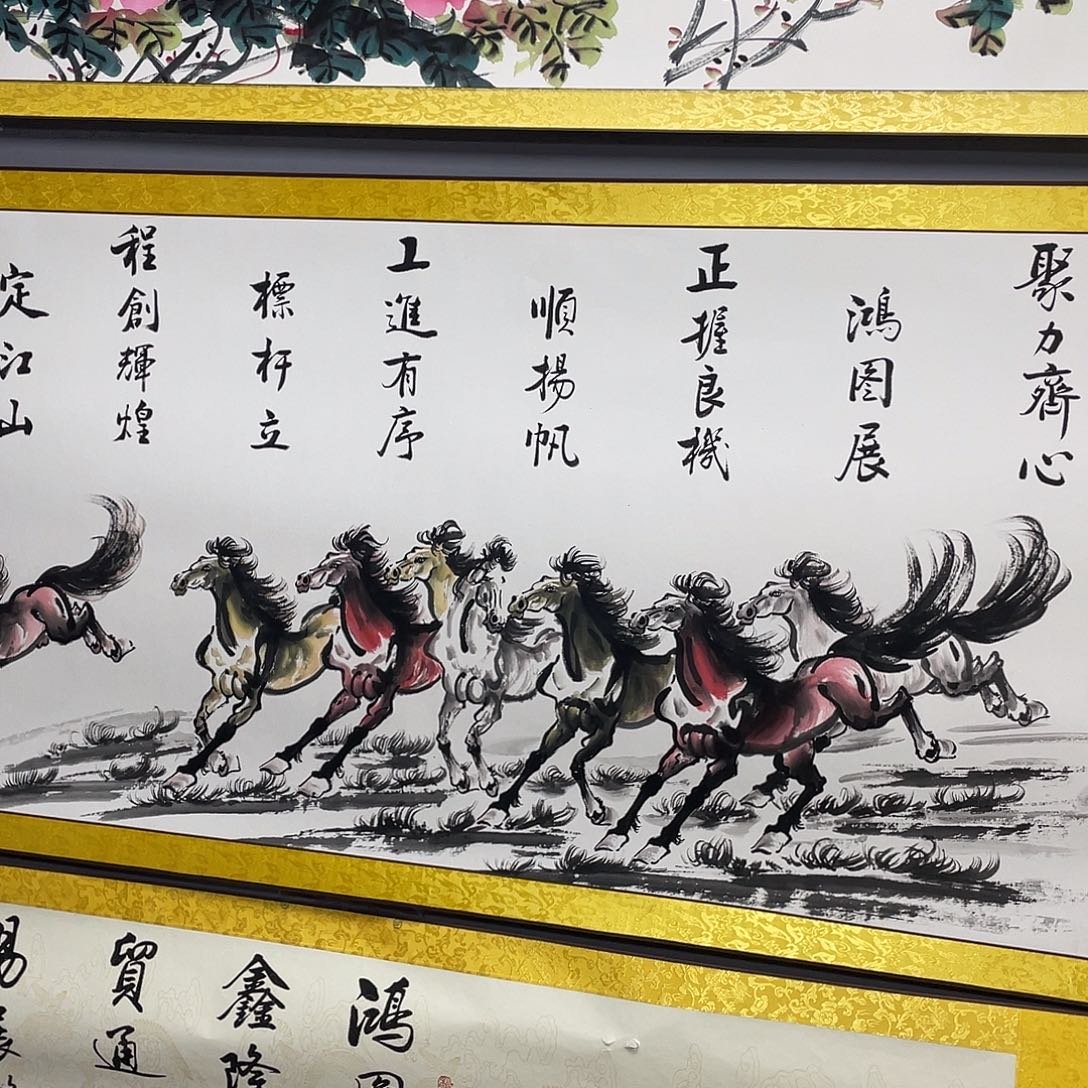 聚力齊心
鴻图展
正握良機
順揚帆
工進有序
標杆立
程創輝煌
定江山
鴻
鑫隆
貿通